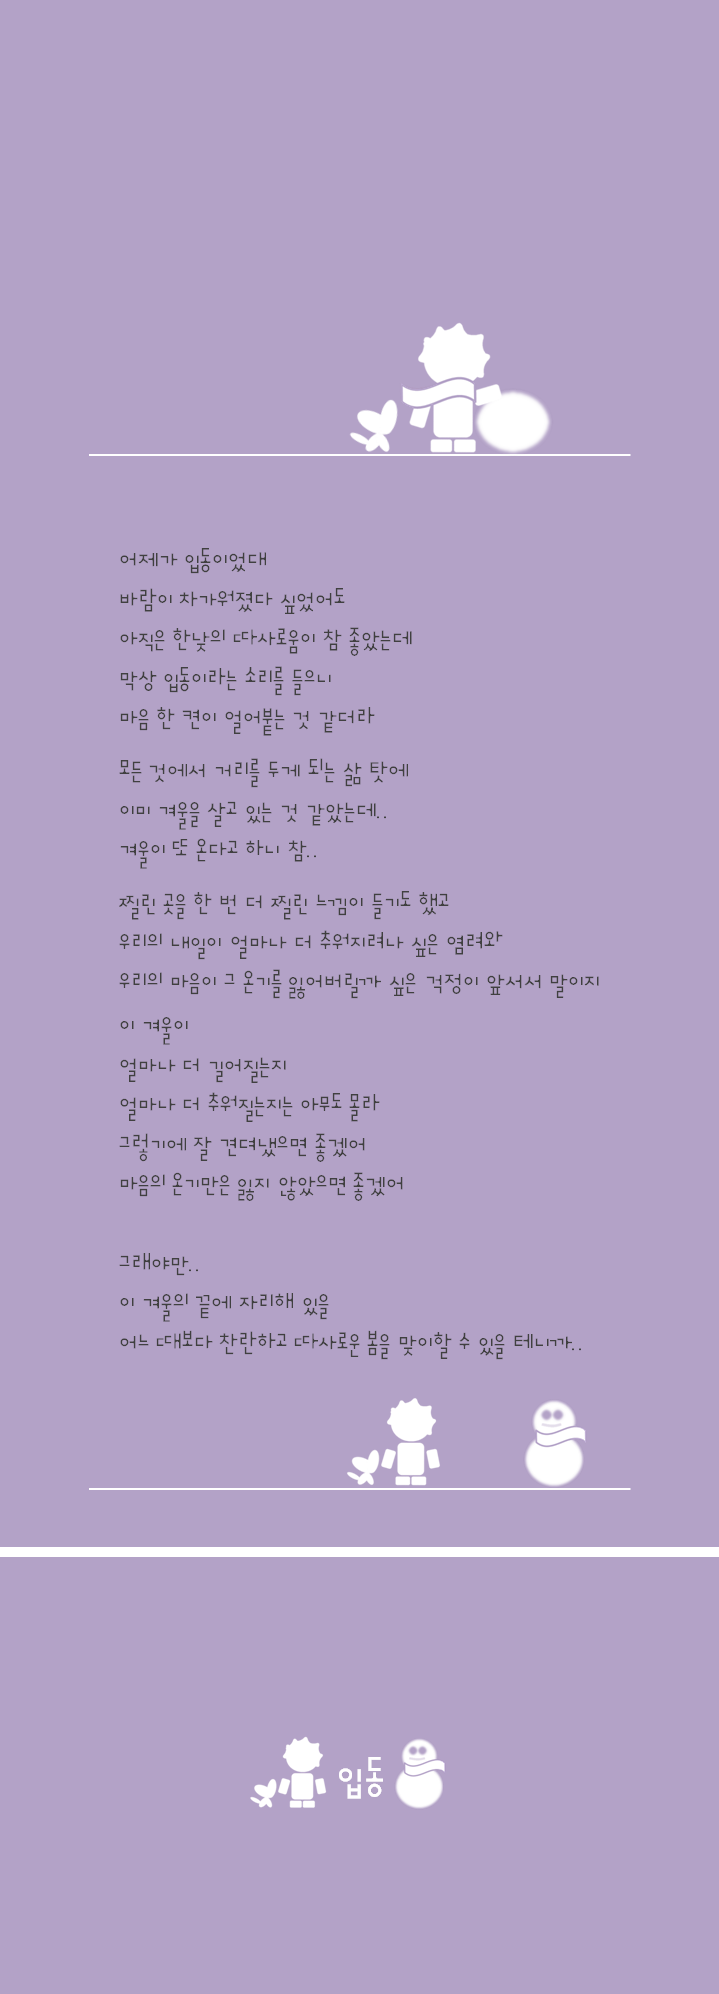 어제가 입동이었대
바람이 차가워졌다 싶었어도
아직은 한낮의 따사로움이 참 좋았는데
막상 입동이라는 소리를 들으니
마음 한 켠이 얼어붙는 것 같더라
모든 것에서 거리를 두게 되는 삶 탓에
이미 겨울을 살고 있는 것 같았는데..
겨울이 또 온다고 하니 참..
찔린 곳을 한 번 더 찔린 느낌이 들기도 했고
우리의 내일이 얼마나 더 추워지려나 싶은 염려와
우리의 마음이 그 온기를 잃어버릴까 싶은 걱정이 앞서서 말이지
이 겨울이
얼마나 더 길어질는지
얼마나 더 추워질는지는 아무도 몰라
그렇기에 잘 견뎌냈으면 좋겠어
마음의 온기만은 잃지 않았으면 좋겠어
그래야만..
이 겨울의 끝에 자리해 있을
어느 때보다 찬란하고 따사로운 봄을 맞이할 수 있을 테니까..
입동